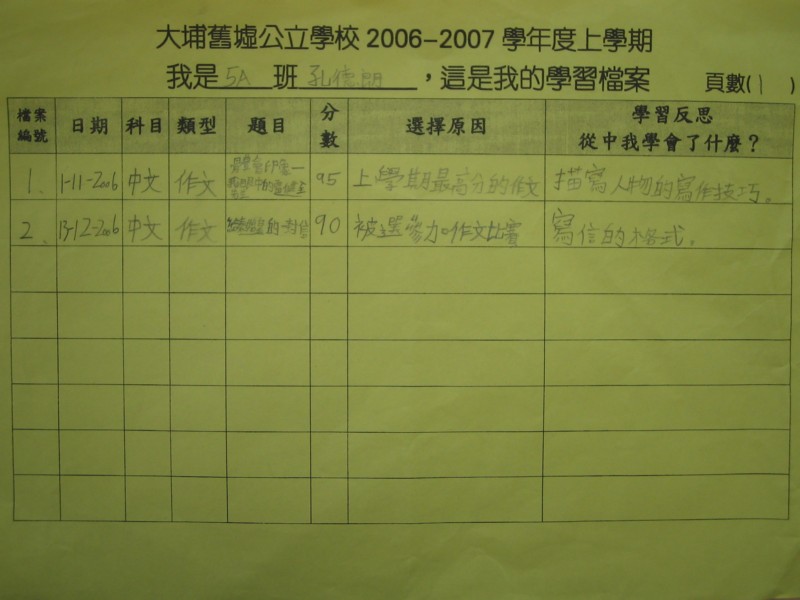 大埔舊墟公立學校 2006-2007 學年度上學期
我是 5A 班 孔德朗 ，這是我的學習檔案 頁數(1)
檔案編號 日期 科目 類型 題目 分數 選擇原因 學習反思 從中我學會了什麼？
1、 1-11-2006 中文 作文 95 上學期最高分的作文 描寫人物的寫作技巧。
2、 13-12-2006 中文 作文 的一封信 90 被選參加作文比賽 寫信的格式。